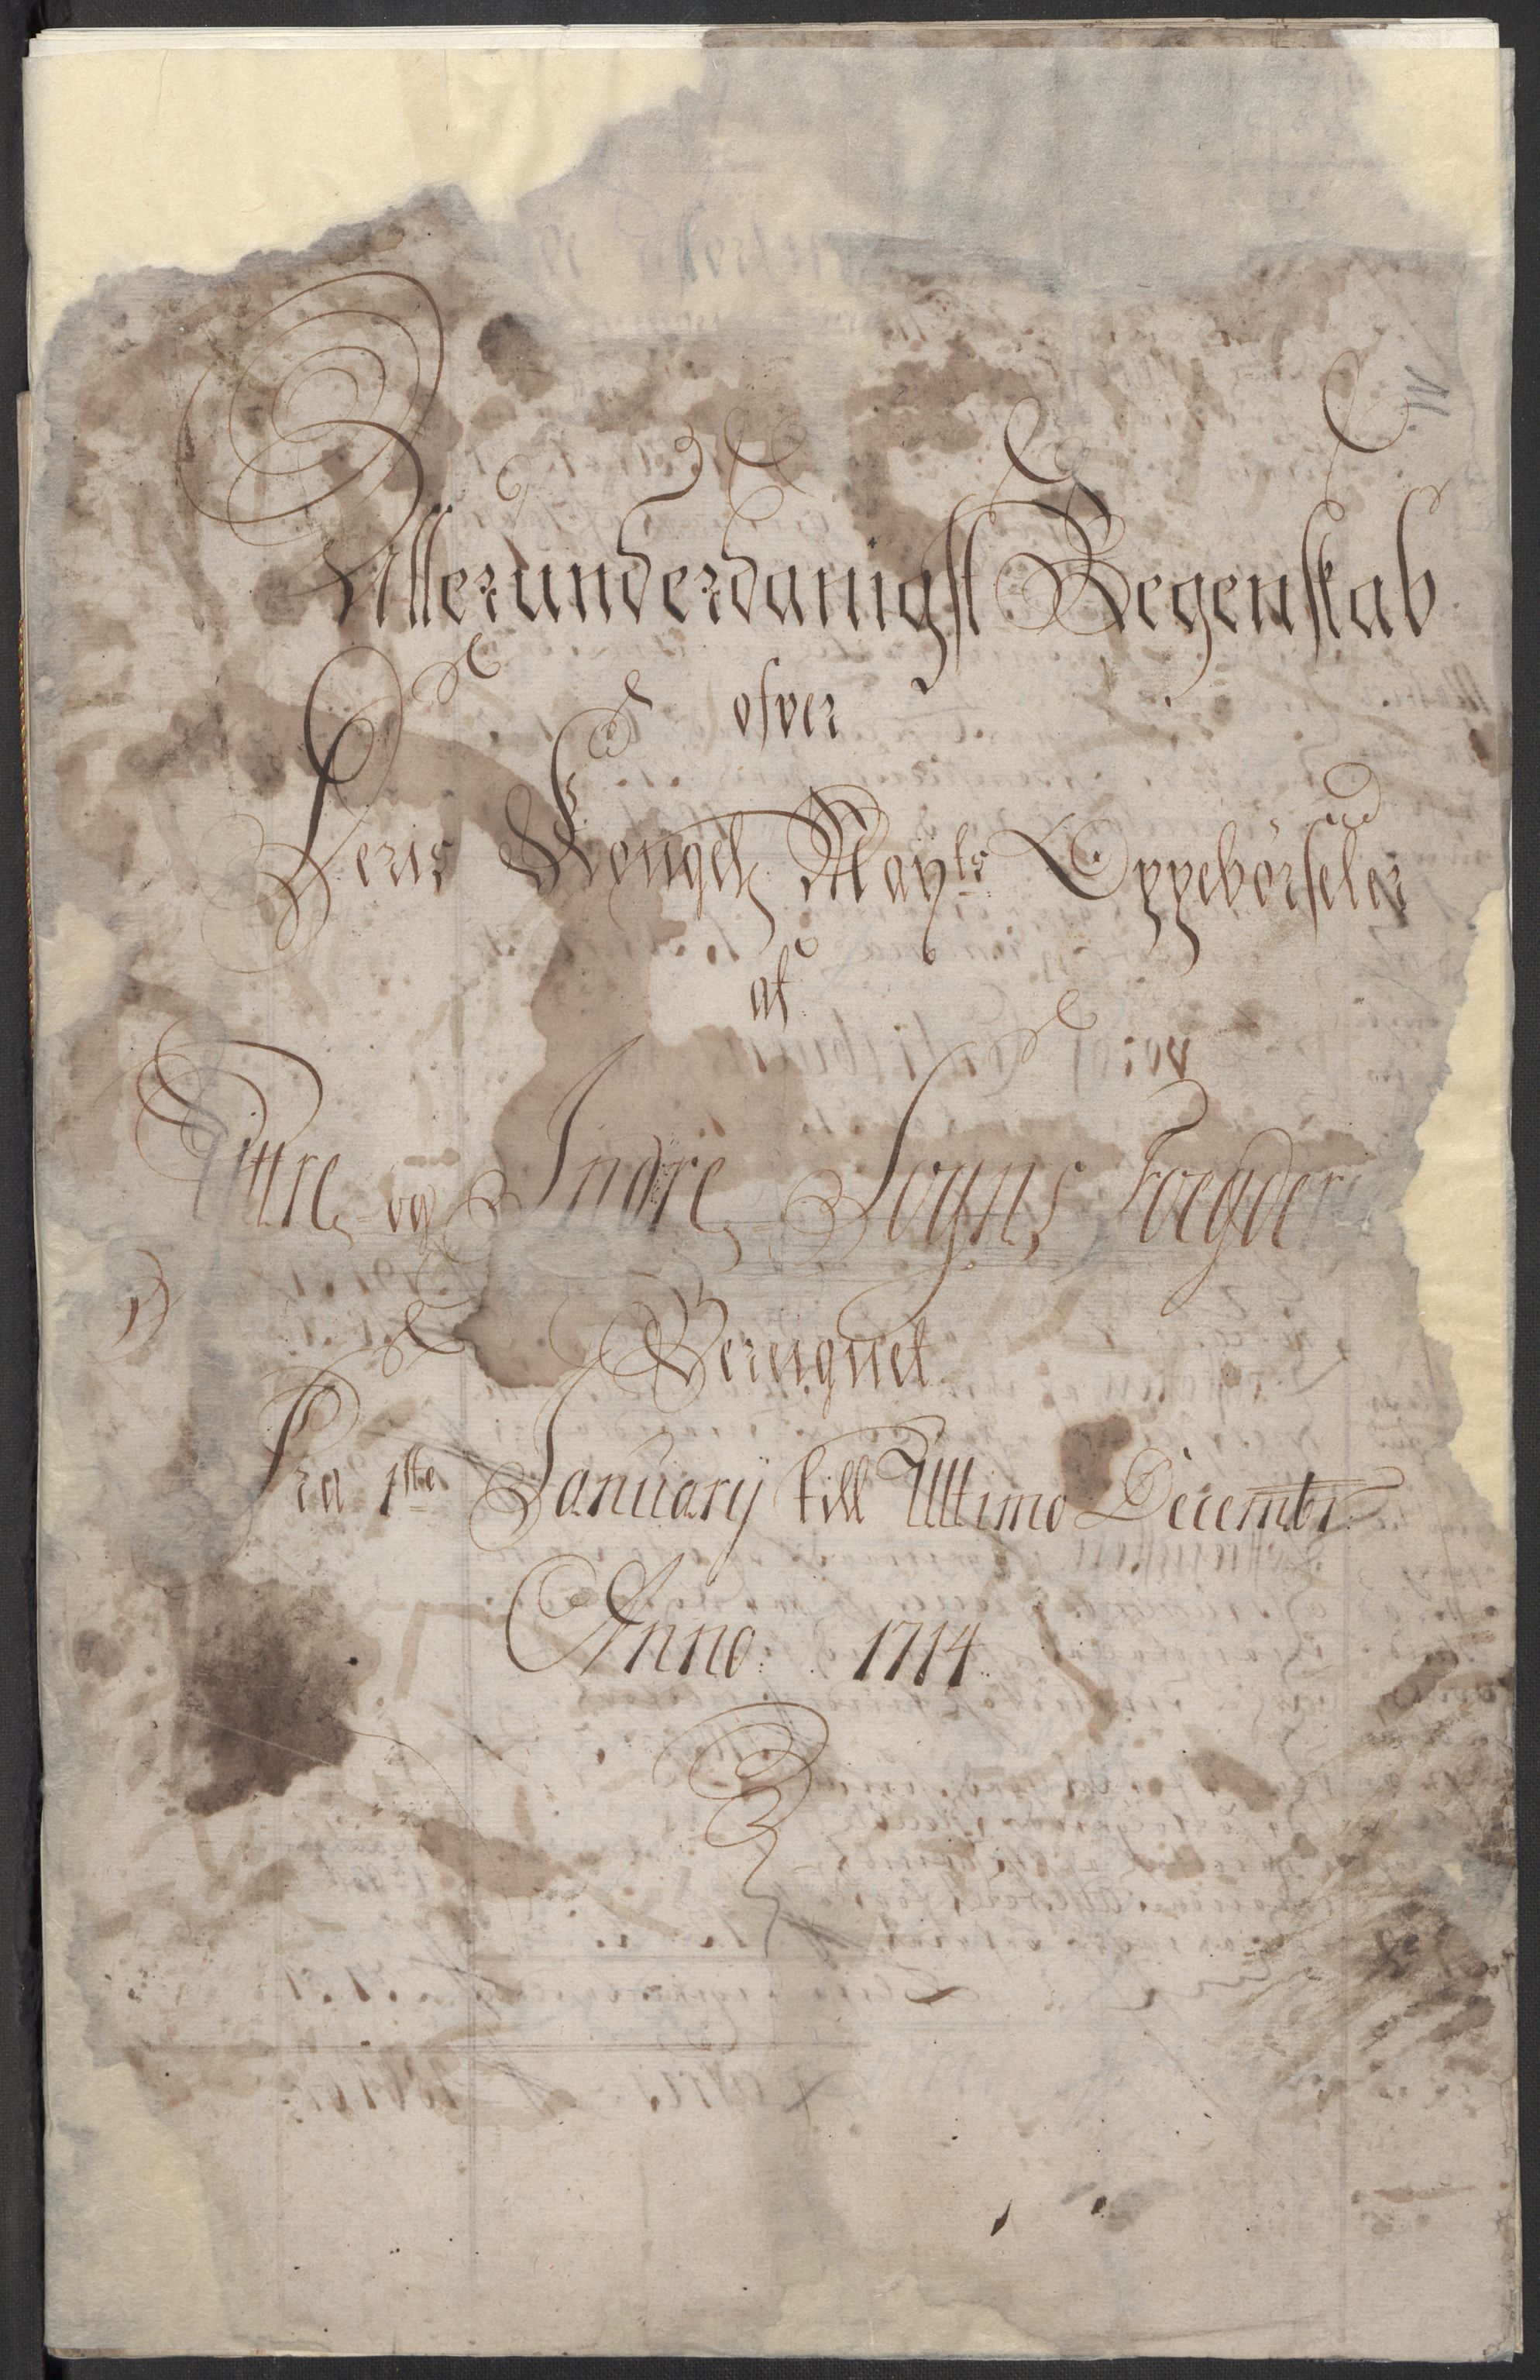 Allerunderdanigst Regenskab
ofver
Deris Kongel Mayts Oppebørseler
af
Yttre og Indre Sogns Foegderi
Beregnet
Fra 1ste January till Ultimo Decembr:
Anno 1714